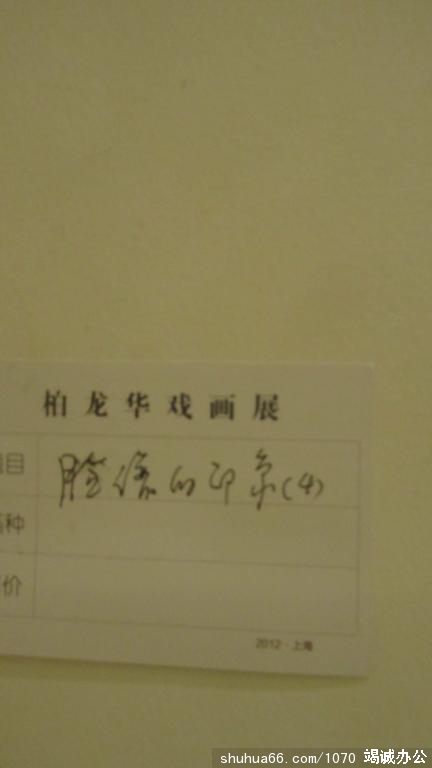 柏龙华戏画展
目 脸谱的印象(4)
种
价
2012·上海
shuhua66.com/1070 竭诚办公